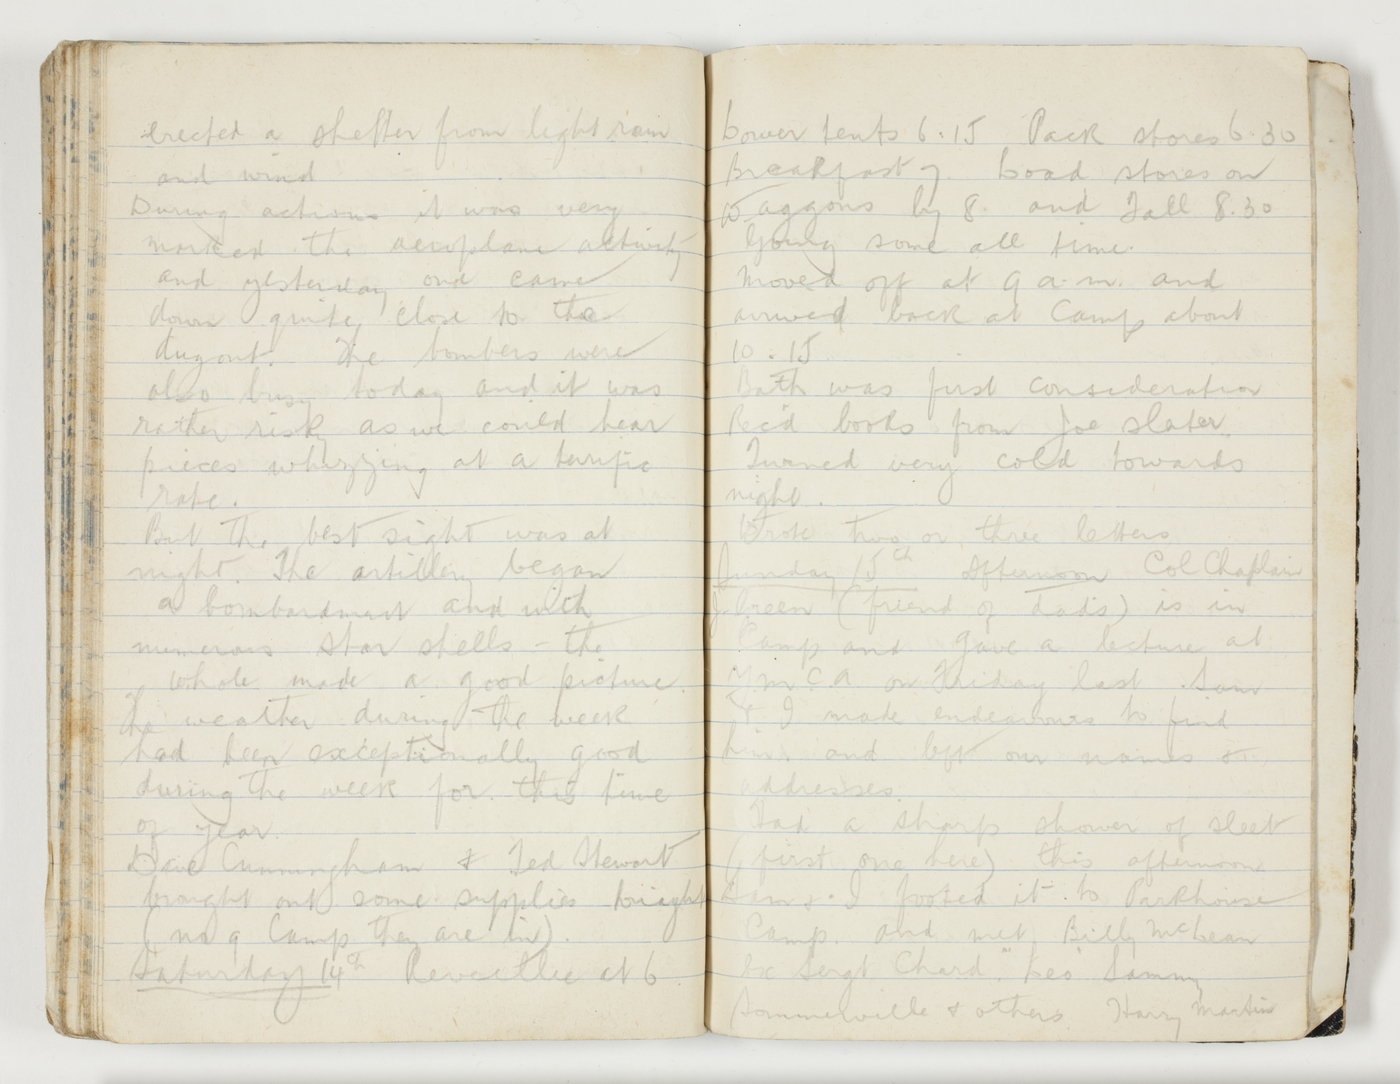 erected a shelter from light rain
and wind
During actions it was very
marked the aeroplane activity
and yesterday one came
down quite close to the
dugout. The bombers were
also busy today and it was
rather risky as we could hear
pieces whizzing at a terrific
rate.
But the best sight was at
night. The artillery began
a bombardment and with
numerous star shells - the
whole made a good picture.
The weather during the week
had been exceptionally good
during the week for this time
of year.
Dave Cunningham & Ted Stewart
brought out some supplies
(no 9 Camp they are in).
Saturday 14th Reveillee at 6
Lower tents 6.15 Pack stores 6.30
Breakfast 7. Load stores on
Waggons by 8. and Fall 8.30
Going some all time.
Moved off at 9 a.m. and
arrived back at Camp about
10.15
Bath was first consideration
Rec'd books from Joe Slater.
Turned very cold towards
night.
Wrote two or three letters
Sunday 15th Afternoon Col Chaplain
Green (friend of Dad's) is in
Camp and gave a lecture at
Y.M.C.A. on Friday last. Sam
& I made endeavours to find
him and left our names &
addresses.
Had a sharp shower of sleet
(first one here) this afternoon
Sam & I footed it to Parkhouse
Camp and met Billy McLean
Sergt Chard, "Leo" Sammy
Sommerville & others Harry Martin